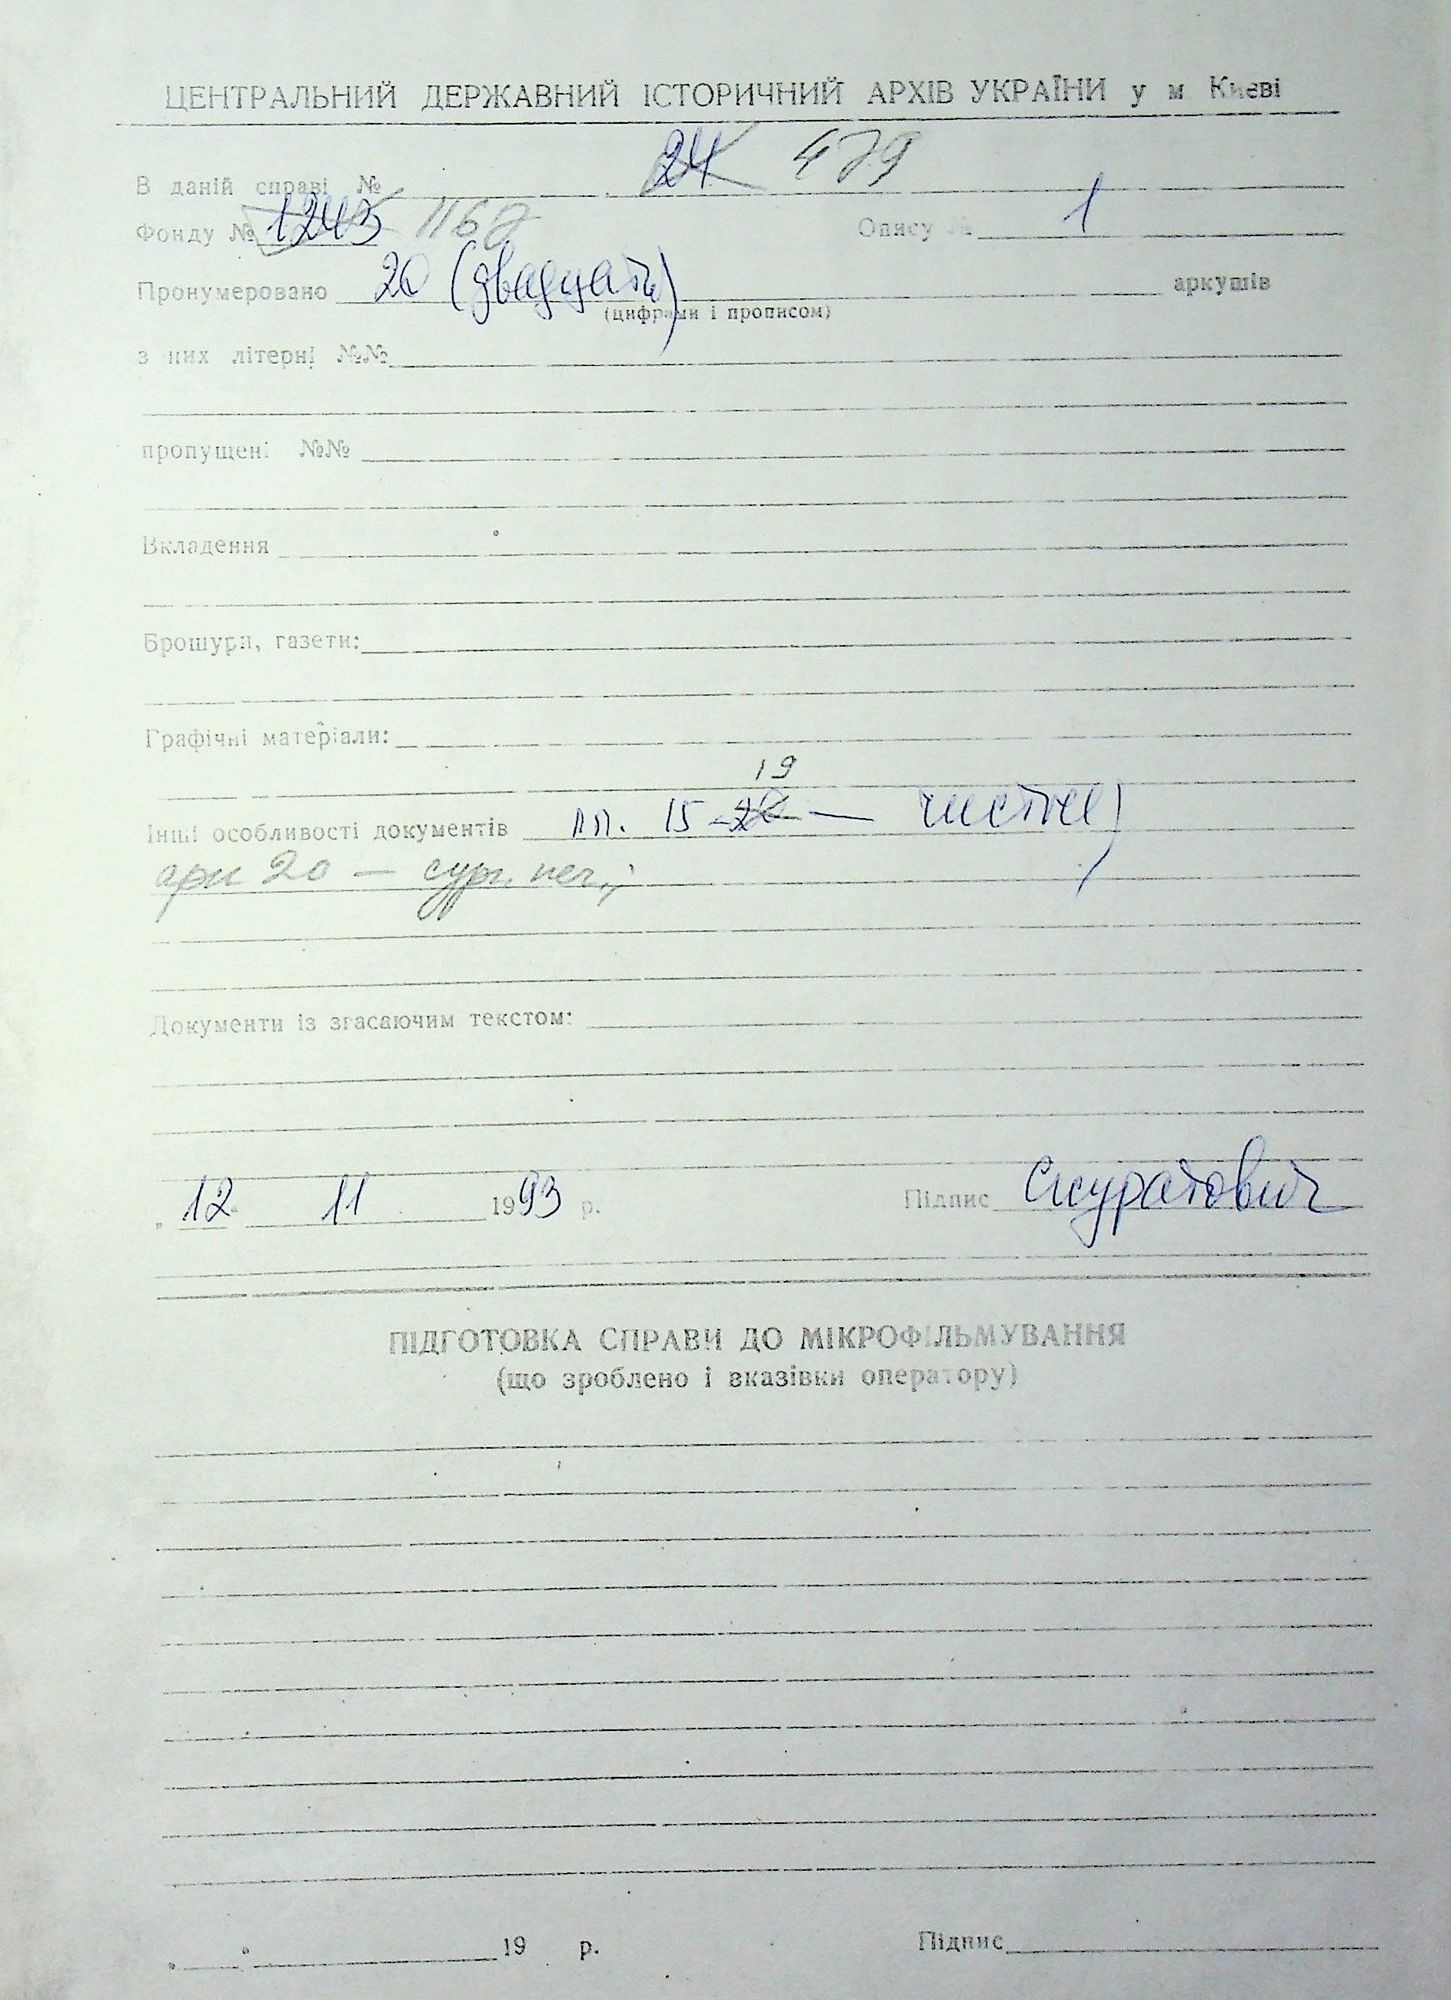 ЦЕНТРАЛЬНИЙ ДЕРЖАВНИЙ ІСТОРИЧНИЙ АРХІВ УКРАЇНИ у м Києві
В даній справі № 24 479
Фонду № 1243 1167 Опису № 1
Пронумеровано 20 (двадцать) аркушів
(цифрами і прописом)
з них літерні №№
пропущені №№
Вкладення
Брошури, газети:
Графічні матеріали:
19
Інші особливості документів лл. 15-20 — чистые
арк 20 — сург. печ.;
Документи із згасаючим текстом:
„ 12 " 11 1993 р. Підпис Скуратович
ПІДГОТОВКА СПРАВИ ДО МІКРОФІЛЬМУВАННЯ
(що зроблено і вказівки оператору)
„ " 19 р. Підпис